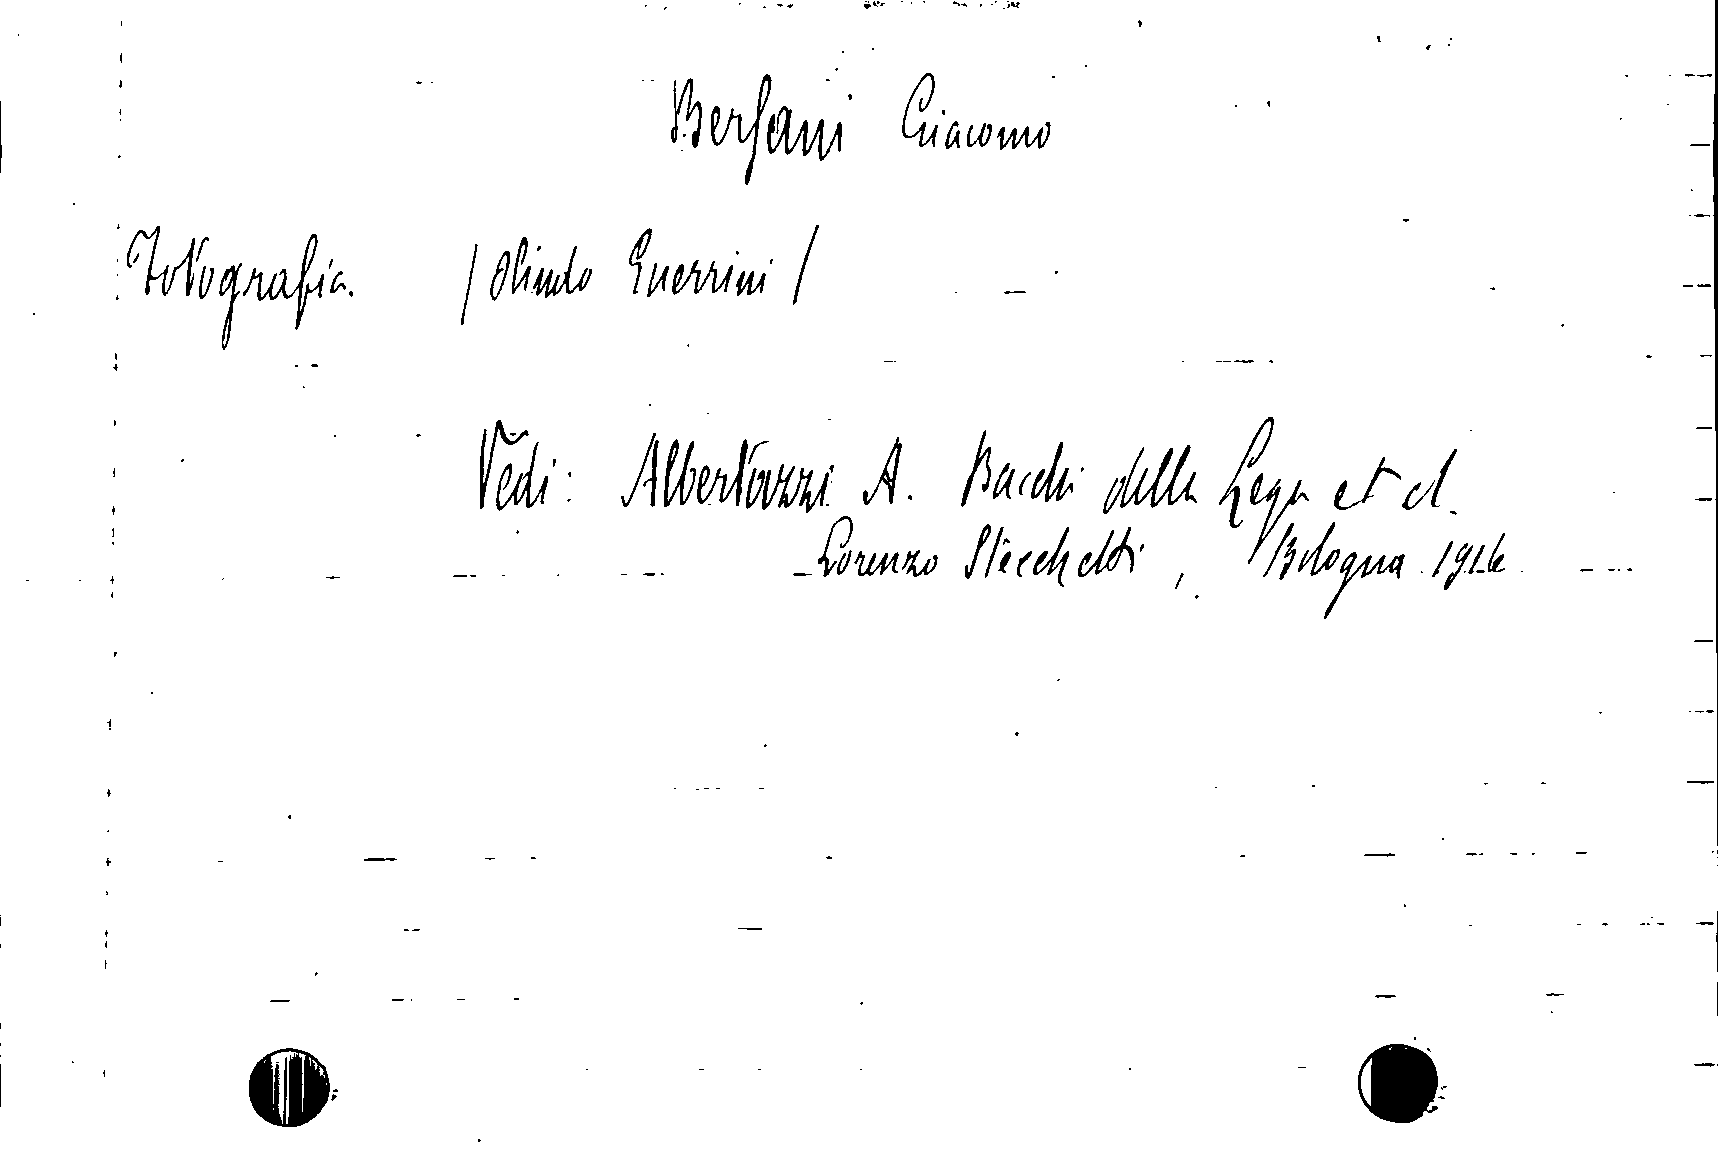 Bersani Giacomo
Fotografia. / Olindo Guerrini /
Vedi: Albertazzi A. Bacchi della Lega et cl.
Lorenzo Stecchetti, Bologna 1916